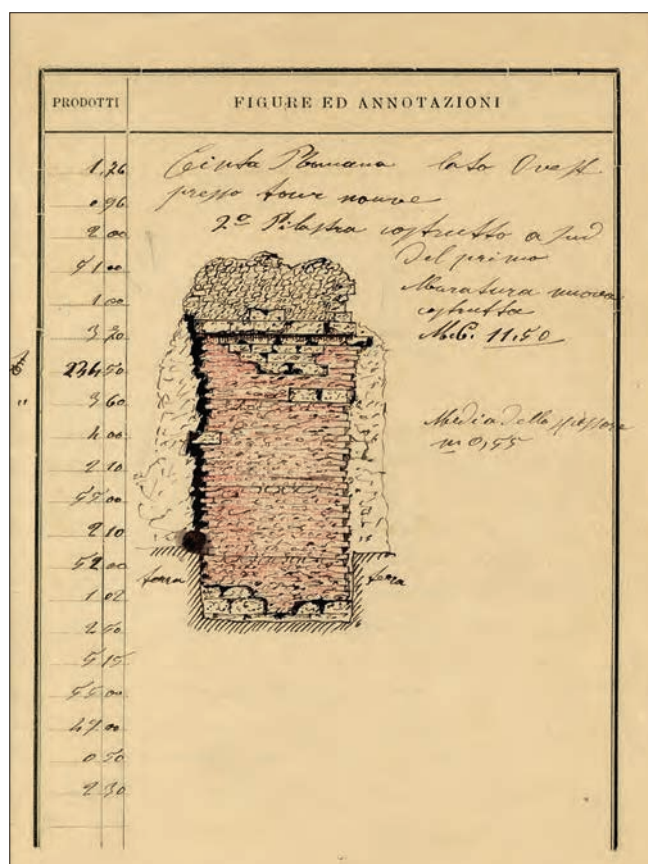 PRODOTTI
FIGURE ED ANNOTAZIONI
1,26
Cinta Romana lato Ovest
0 96
presso tour neuve
2 00
2º Pilastro costrutto a sud
del primo
51 00
Muratura nuova
1 00
costrutta
3 20
M.C. 11.50
234 50
"
3 60
Media dello spessore
m 0,55
4 00
2 10
55 00
2 10
52 00
terra
terra
1 02
2 50
5 15
55 00
47 00
0 50
2 30